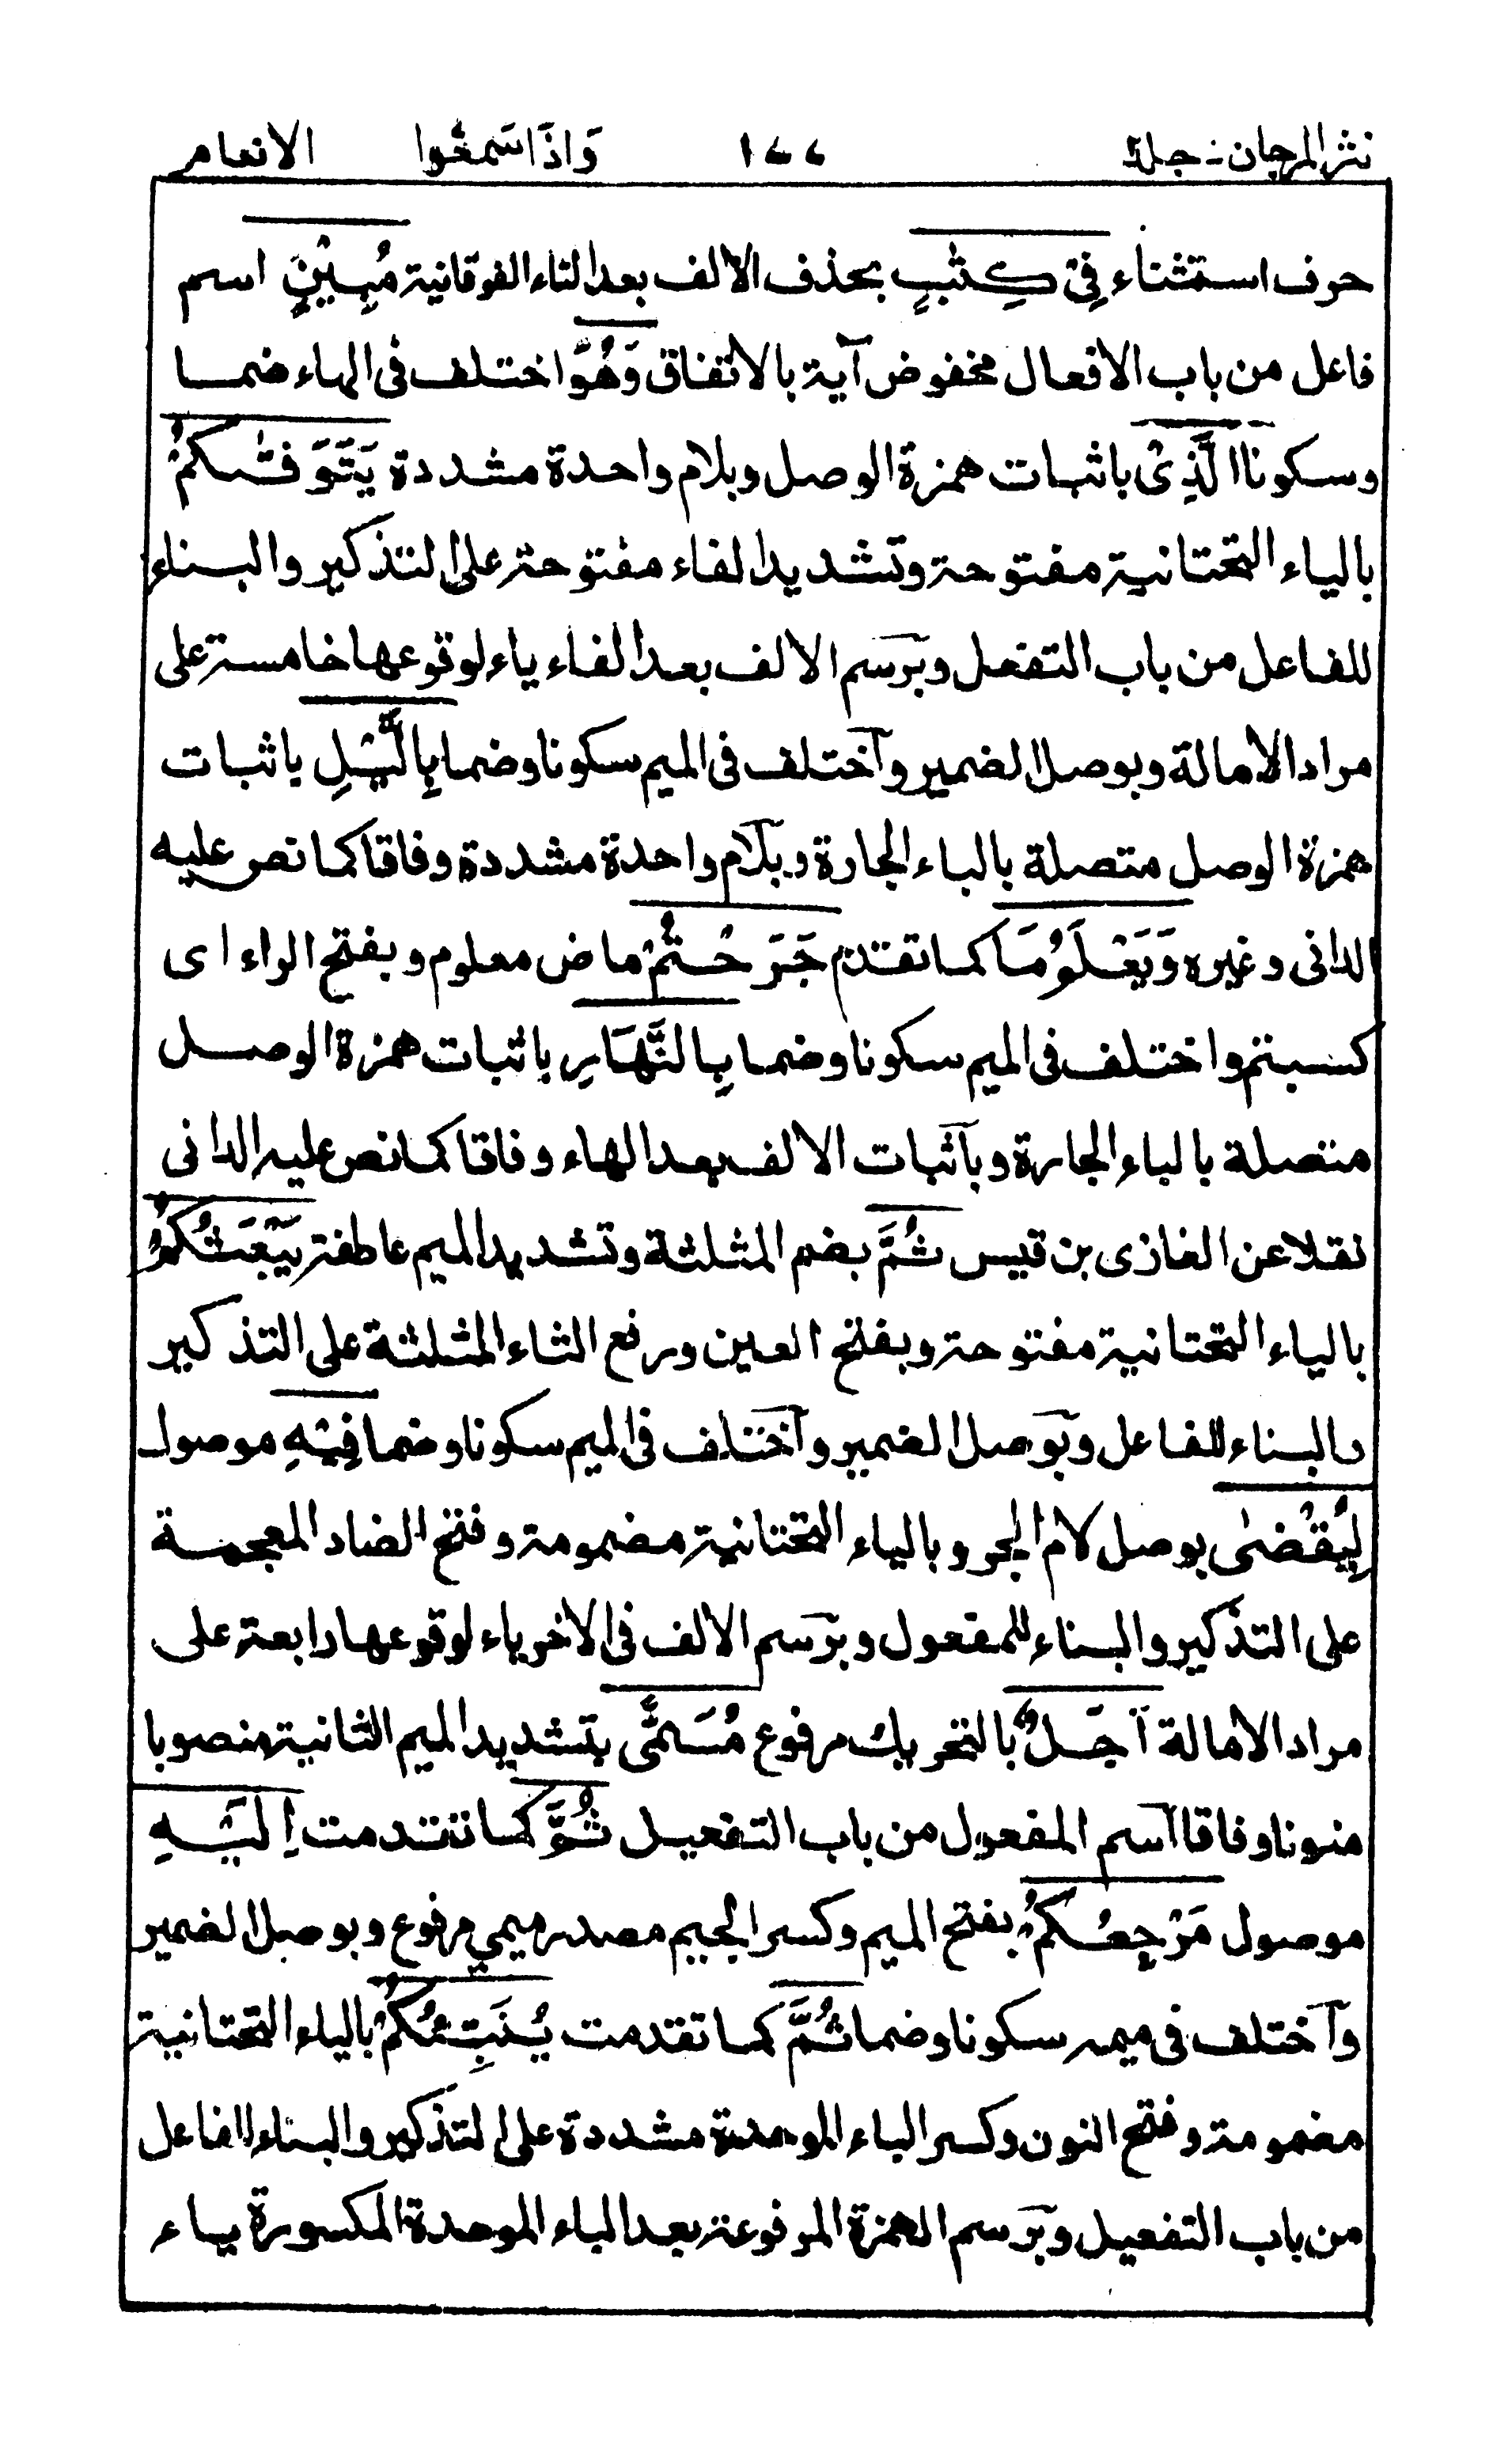 نثر المرجان - جلد ٢ ١٧٧ وَاِذَا سَمِعُوا الانعام
حرف استثناء فِىْ كِتٰبٍ بحذف الالف بعد التاء الفوقانية مُبِيْنٍ اسم
فاعل من باب الافعال مخفوض آية بالاتفاق وَهُوَ اختلف فى الهاء ضما
وسكونا الَّذِىْ باثبات همزة الوصل وبلام واحدة مشددة يَتَوَفّٰىكُمْ
بالياء التحتانية مفتوحة وتشديد الفاء مفتوحة على التذكير والبناء
للفاعل من باب التفعل وبرسم الالف بعد الفاء ياء لوقوعها خامسة على
مراد الامالة وبوصل الضمير واختلف فى الميم سكونا وضما بِالَّيْلِ باثبات
همزة الوصل متصلة بالباء الجارة وبلام واحدة مشددة وفاقا كما نص عليه
الدانى وغيره وَيَعْلَمُ مَا كما تقدم جَرَحْتُمْ ماض معلوم وبفتح الراء اى
كسبتم واختلف فى الميم سكونا وضما بِالنَّهَارِ باثبات همزة الوصل
متصلة بالباء الجارة وباثبات الالف بعد الهاء وفاقا كما نص عليه الدانى
نقلا عن الغازى بن قيس ثُمَّ بضم المثلثة وتشديد الميم عاطفة يَبْعَثُكُمْ
بالياء التحتانية مفتوحة وبفتح العين ورفع الثاء المثلثة على التذكير
والبناء للفاعل وبوصل الضمير واختلف فى الميم سكونا وضما فِيْهِ موصول
لِيُقْضٰى بوصل لام الجر وبالياء التحتانية مضمومة وفتح الضاد المعجمة
على التذكير والبناء للمفعول وبرسم الالف فى الاخر ياء لوقوعها رابعة على
مراد الامالة اَجَلٌ بالتحريك مرفوع مُسَمًّى بتشديد الميم الثانية منصوبا
منونا وفاقا اسم المفعول من باب التفعيل ثُمَّ كما تقدمت اِلَيْهِ
موصول مَرْجِعُكُمْ بفتح الميم وكسر الجيم مصدر ميمي مرفوع وبوصل الضمير
واختلف فى ميمه سكونا وضما ثُمَّ كما تقدمت يُنَبِّئُكُمْ بالياء التحتانية
مضمومة وفتح النون وكسر الباء الموحدة مشددة على التذكير والبناء للفاعل
من باب التفعيل وبرسم الهمزة المرفوعة بعد الباء الموحدة المكسورة ياء